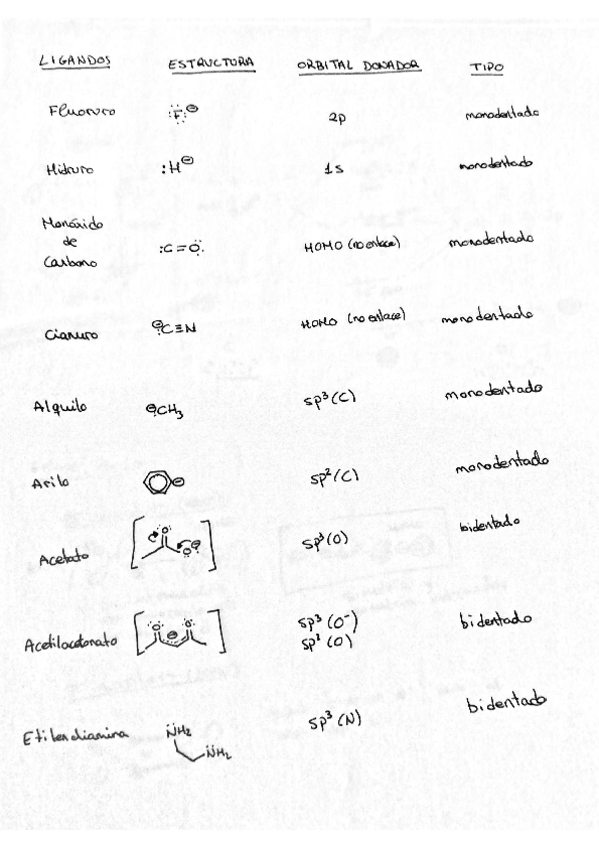 LIGANDOS ESTRUCTURA ORBITAL DONADOR TIPO
Fluoruro :F: ⊖ 2p monodentado
Hidruro :H⊖ 1s monodentado
Monóxido
de
Carbono :C=O: HOMO (no enlace) monodentado
Cianuro ⊖:C≡N HOMO (no enlace) monodentado
Alquilo ⊖:CH₃ sp³(C) monodentado
Arilo ⊖ sp²(C) monodentado
Acetato O O⊖ sp³(O) bidentado
Acetilacetonato O ⊖ O sp³(O⁻) bidentado
sp³(O)
Etilendiamina N̈H₂ N̈H₂ sp³(N) bidentado